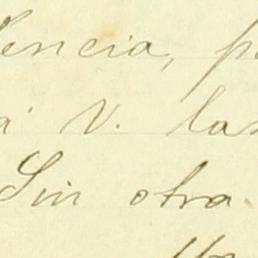 lencia, p
á V. las
Sin otra